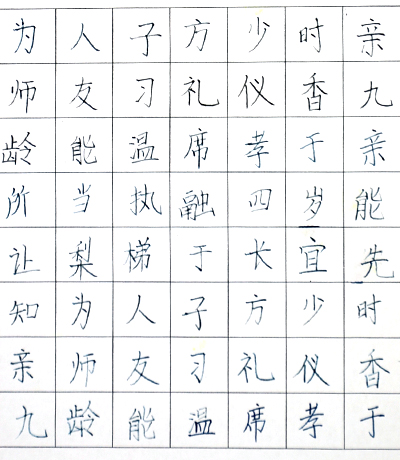 为人子方少时亲
师友习礼仪香九
龄能温席孝于亲
所当执融四岁能
让梨梯于长宜先
知为人子方少时
亲师友习礼仪香
九龄能温席孝于